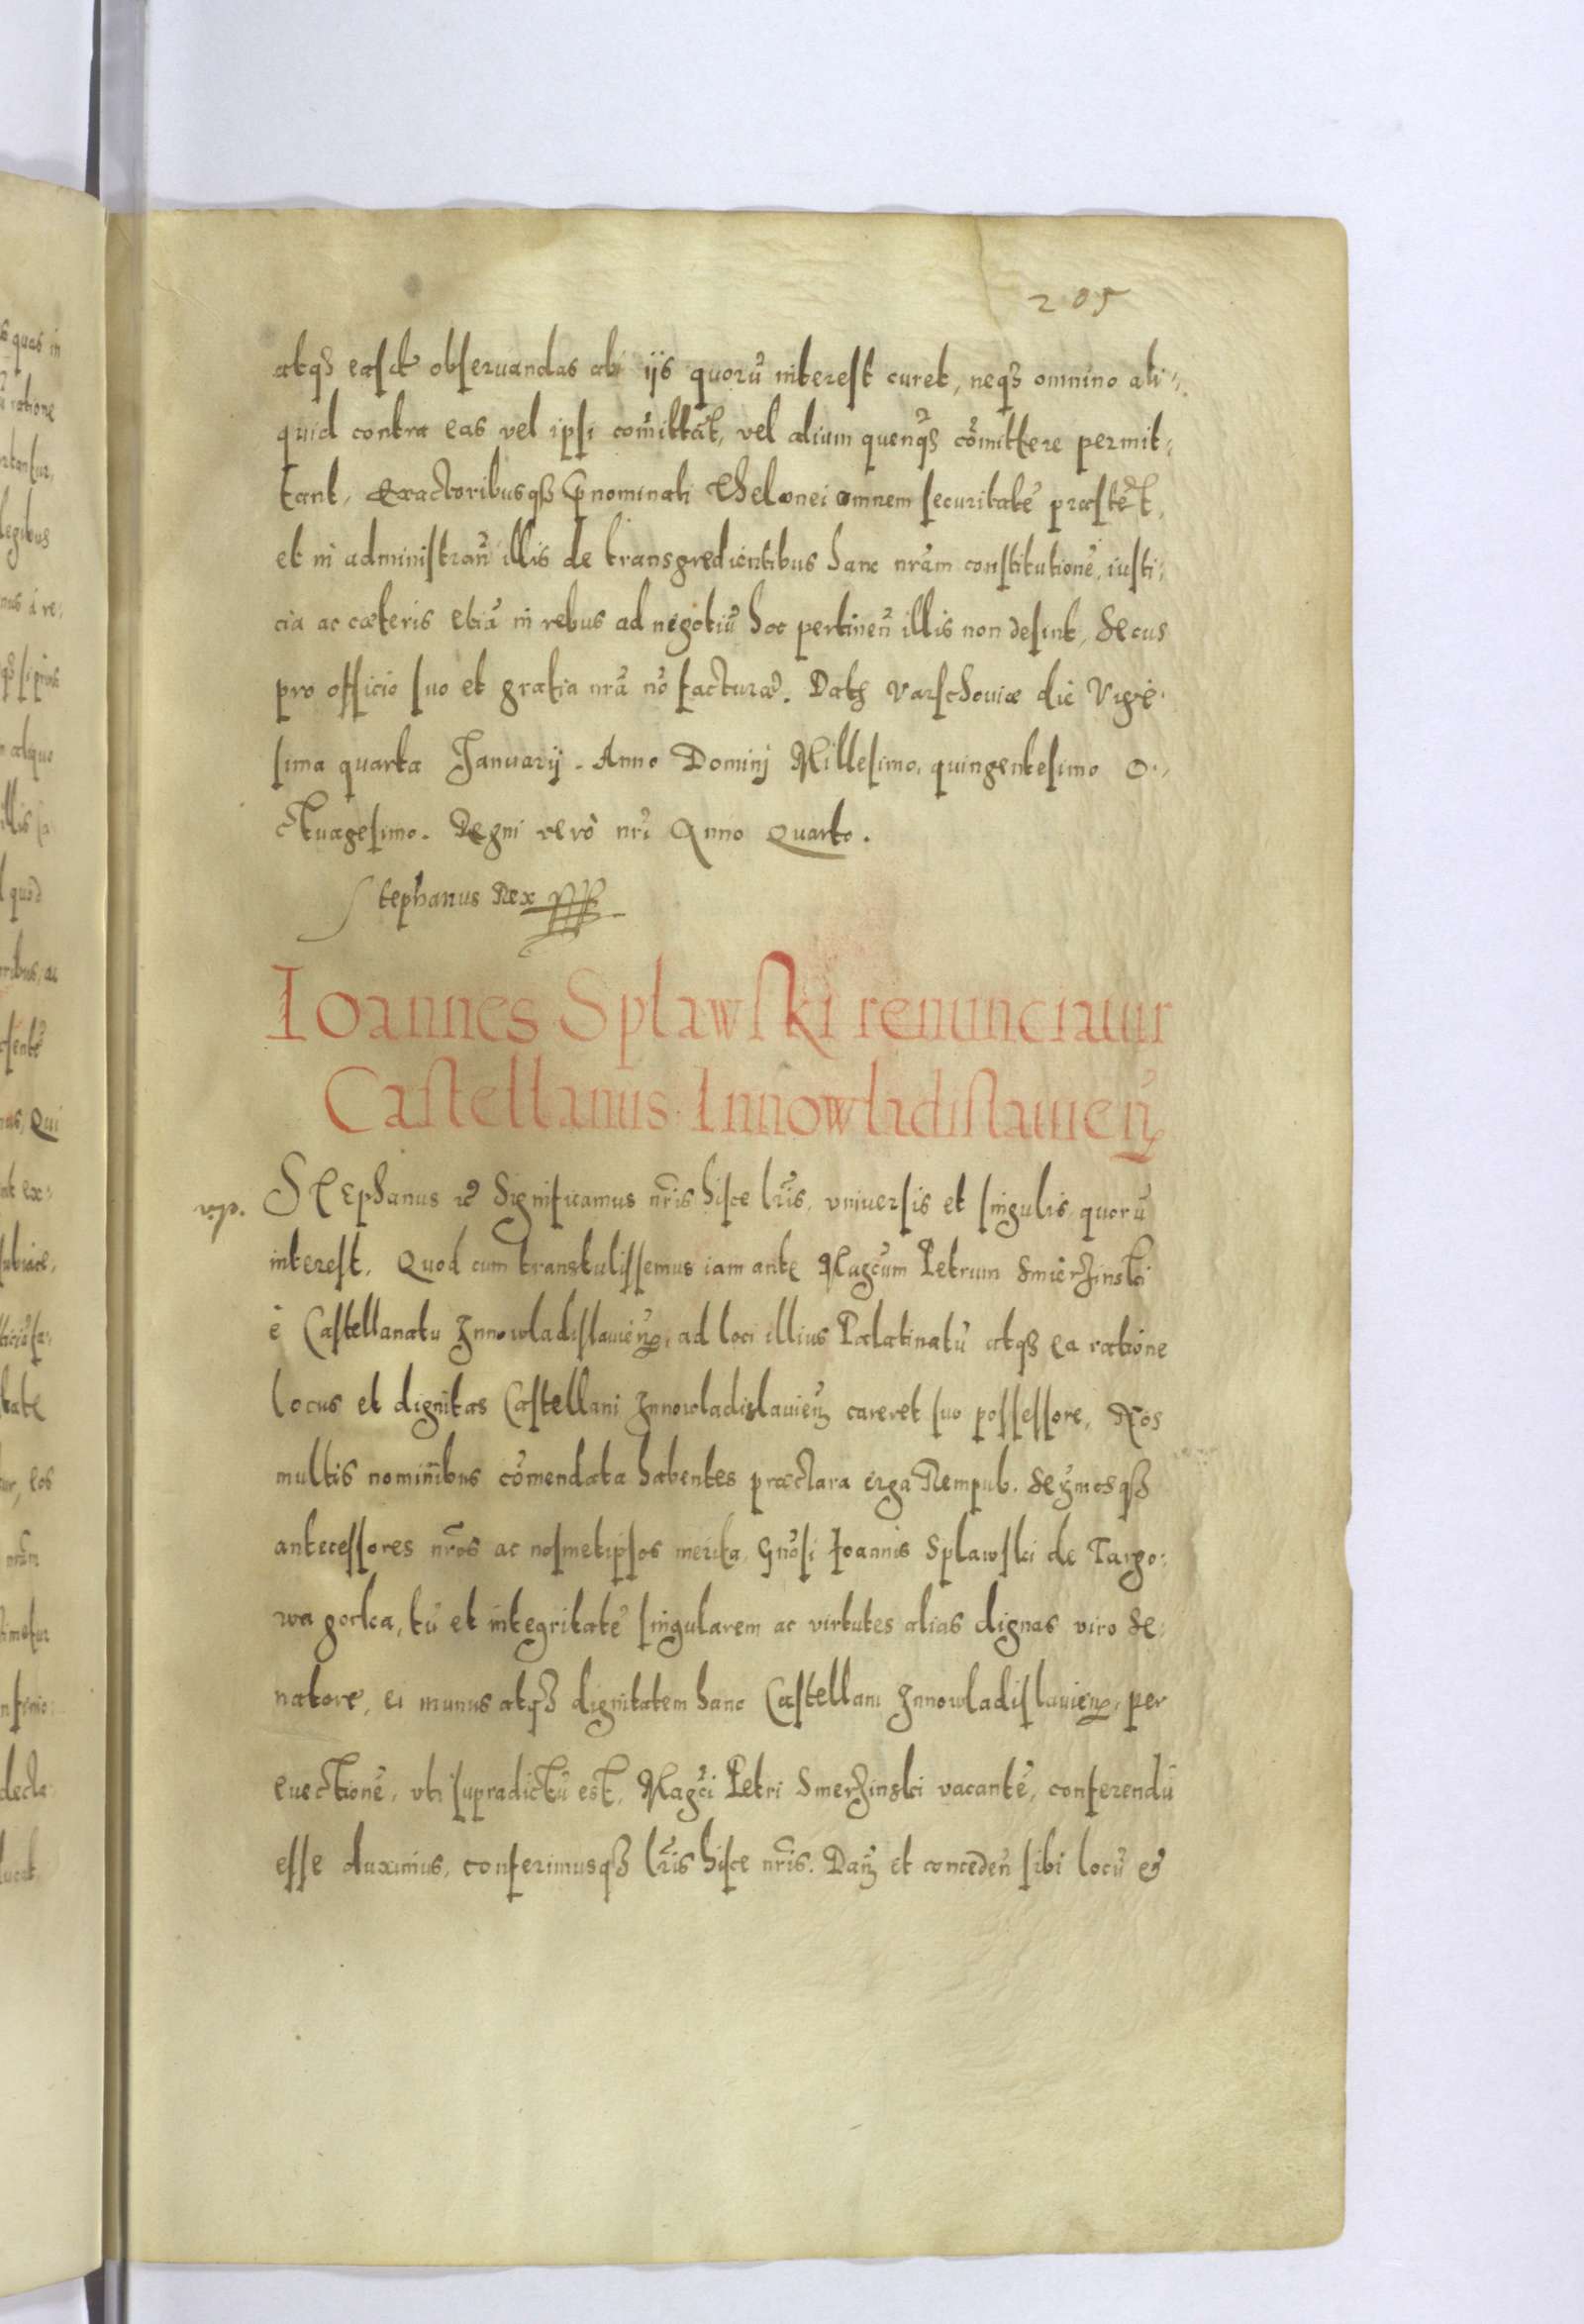 205
atqз easdẽ obseruandas ab ijs quorũ interest curet, neqз omnino ali⸗
quid contra eas vel ipsi com̃ittãt, vel alium quenqз com̃ittere permit⸗
tant, Exactoribusqз p̃nominati Thelonei omnem securitatẽ præstẽt,
et in administrañ illis de transgredientibus hanc nrãm constitutionẽ, iusti⸗
cia ac cæteris etiã in rebus ad negotiũ hoc pertineñ illis non desint, Secus
pro officio suo et gratia nrã nõ facturæ. Datз Varschouiæ die Vige⸗
sima quarta Januarij. Anno Dominj Millesimo, quingentesimo O⸗
ctuagesimo. Regni vero nrĩ Anno Quarto.
Stephanus Rex
Ioannes Splawski renunciatur
Castellanus Innowladislauień
Stephanus &c Significamus nrĩs hisce lrĩs, vniuersis et singulis quorũ
interest, Quod cum transtulissemus iam ante Magcũm Petrum Smierzinski
è Castellanatu Innowladislauień, ad loci illius Palatinatũ atqз ea ratione
locus et dignitas Castellani Innowladislauień careret suo possessore, Nos
multis nominibus com̃endata habentes præclara erga Rempub. Seỹmosqз
antecessores nrõs ac nosmetipsos merita, Gnõsi Joannis Splawski de Targo⸗
wa gorka, tũ et integritatẽ singularem ac virtutes alias dignas viro Se⸗
natore, ei munus atqз dignitatem hanc Castellani Innowladislauień, per
euectionẽ, vti supradictũ est, Magcĩ Petri Smerzinski vacantẽ, conferendũ
esse duximus, conferimusqз lrĩs hisce nrĩs. Dań et conceden̄ sibi locũ et